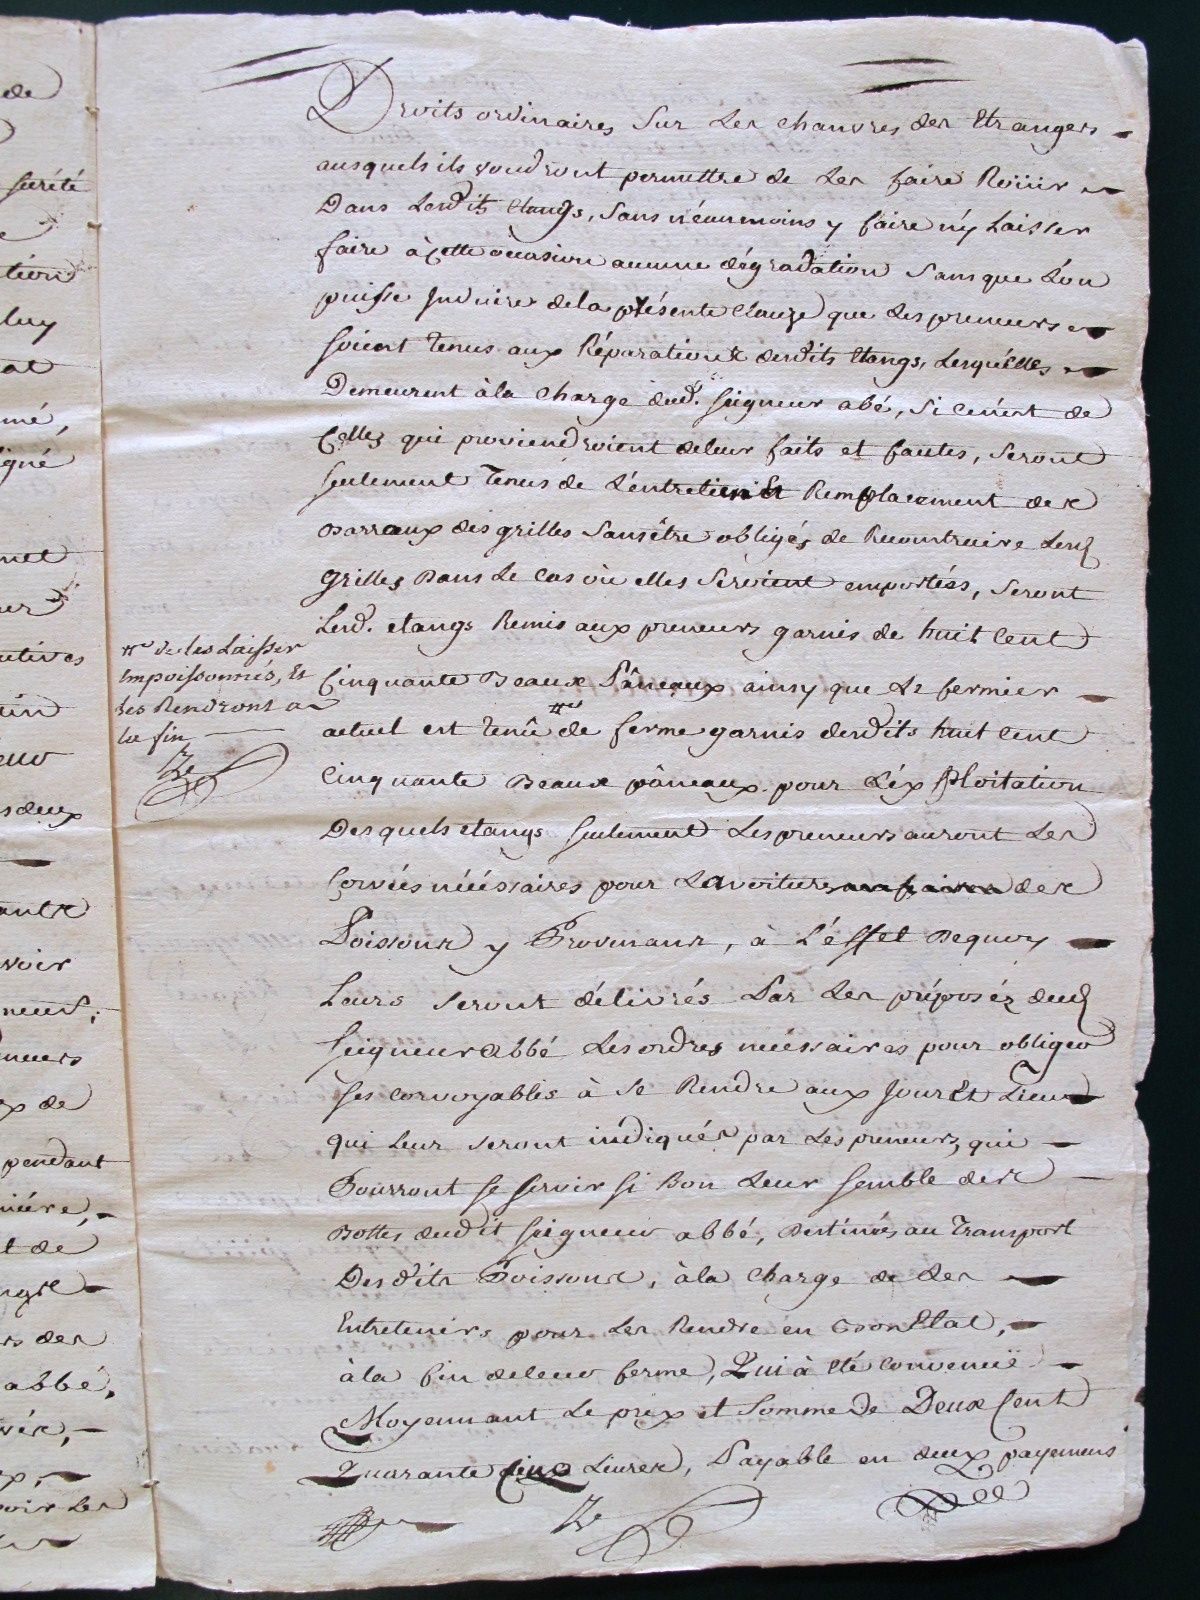 de
sûrété
tion
luy
at
mé,
igné
net
utives
deux
voir
neuf;
neurs
x de
pendant
niére,
t de
rs des
abbé,
voir les
Droits ordinaires sur les chanvres des Etrangers
ausquels ils voudront permettre de les faire Roüir
Dans lesdits Etangs, sans néanmoins y faire n'y laisser
faire à cette occasion aucune dégradation sans que l'on
puisse Induire de la présente Clauze que les preneurs
soient tenus aux Réparations desdits Etangs, lesquelles
Demeurent à la charge dud. seigneur abé, si ce n'est de
Celles qui proviendroient de leur faits et fautes, seront
seulement Tenus de l'entretien Et Remplacement des
Barreaux des grilles sans être obligés de Reconstruire lesd
grilles Dans le cas où elles seroient emportées, seront
Lesd. etangs Remis aux preneurs garnis de huit Cent
Cinquante Beaux Pâneaux ainsy que le fermier
actuel est tenû # de ferme garnis desdits huit Cent
Cinquante Beaux pâneaux. pour l'éxploitation
Desquels etangs seulement les preneurs auront les
Corvées nécéssaires pour la voiture des
Poissons y Provenans, à l'éffet Dequoy
Leurs seront délivrés Par les préposéz dud
seigneur abbé les ordres nécéssaires pour obliger
ses Corvoyables à se Rendre aux Jour Et Lieux
qui leur seront indiqués par les preneurs, qui
Pourront se servir si Bon leur semble des
Bottes dudit seigneur abbé, Destinées au Transport
Desdits Poissons, à la Charge de les
Entretenirs pour les Rendre en Bon Etat,
à la fin de leur ferme, Qui à été Convenuë
Moyennant le prix et Somme de Deux Cent
Quarante Cinq Livres, Payable en deux payemens
# de les Laisser
Empoissonnés, Et
les Rendront a
la fin